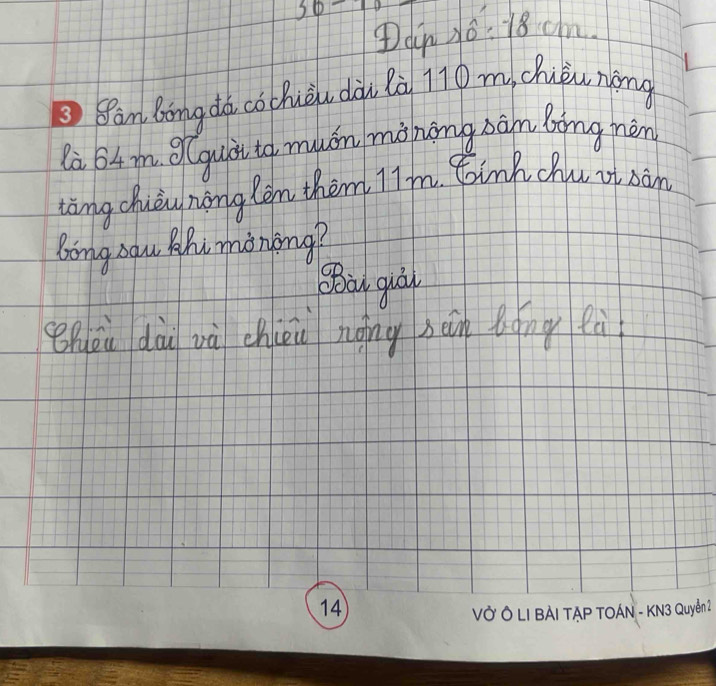 Đáp số: 18 cm.
3 Sân bóng đá có chiều dài là 110 m, chiều rộng
là 64 m. Người ta muốn mở rộng sân bóng nên
tăng chiều rộng lên thêm 11 m. Tính chu vi sân
bóng sau khi mở rộng?
Bài giải
Chiều dài và chiều rộng sân bóng là:
14
VỞ Ô LI BÀI TẬP TOÁN - KN3 Quyển 2